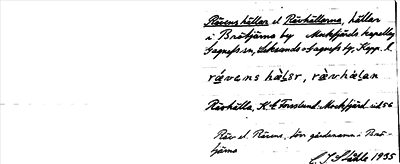 Rävens hällar el Rävhällarna, hällar
i Bråtjärna by Mockfjärds kapellag
Gagnefs sn, Leksands o Gagnefs tg, Kopp. l.
rävens hälar, rävhälan
Rävhälla, K. E. Forsslund Mockfjärd sid 56
Räv el. Rävens, förr gårdsnamn i Brå-
tjärna
1935